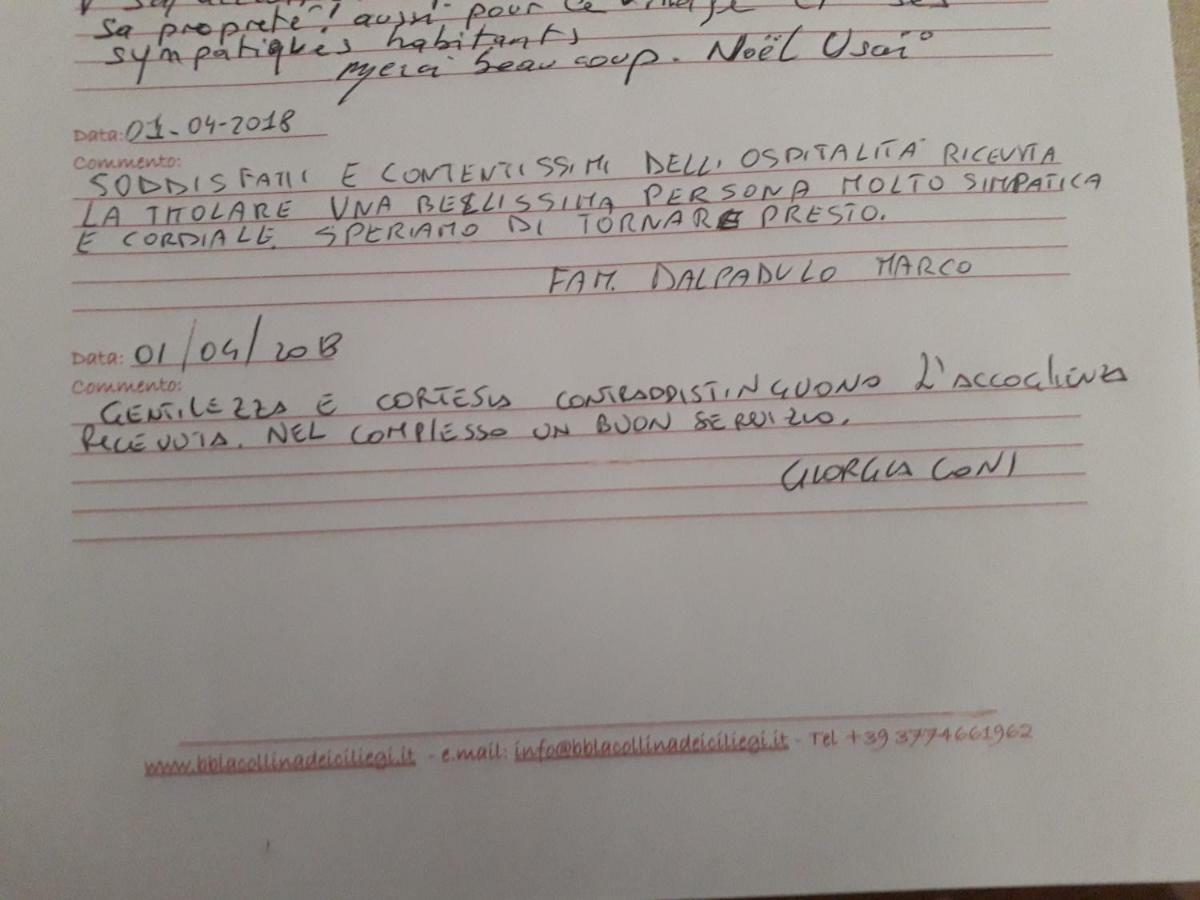 sa propreté! aussi pour ce village et ses
sympatiques habitants
merci beaucoup. Noël Usai
Data: 01-04-2018
Commento:
SODDISFATTI E CONTENTISSIMI DELL'OSPITALITÀ RICEVUTA
LA TITOLARE UNA BELLISSIMA PERSONA MOLTO SIMPATICA
E CORDIALE SPERIAMO DI TORNARE PRESTO.
FAM. DALPADULO MARCO
Data: 01/04/2018
Commento:
GENTILEZZA E CORTESIA CONTRADDISTINGUONO L'ACCOGLIENZA
RICEVUTA. NEL COMPLESSO UN BUON SERVIZIO.
GIORGIA CONI
www.bblacollinadeiciliegi.it - e.mail: info@bblacollinadeiciliegi.it - Tel +39 3774661962